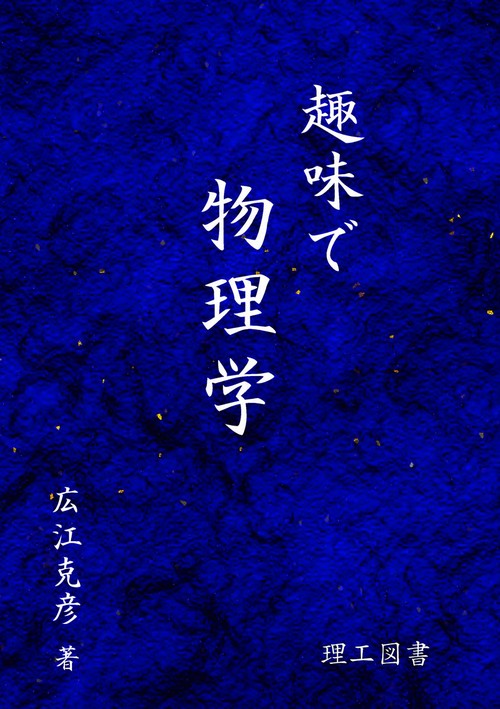 趣味で
物理学
広江克彦 著
理工図書